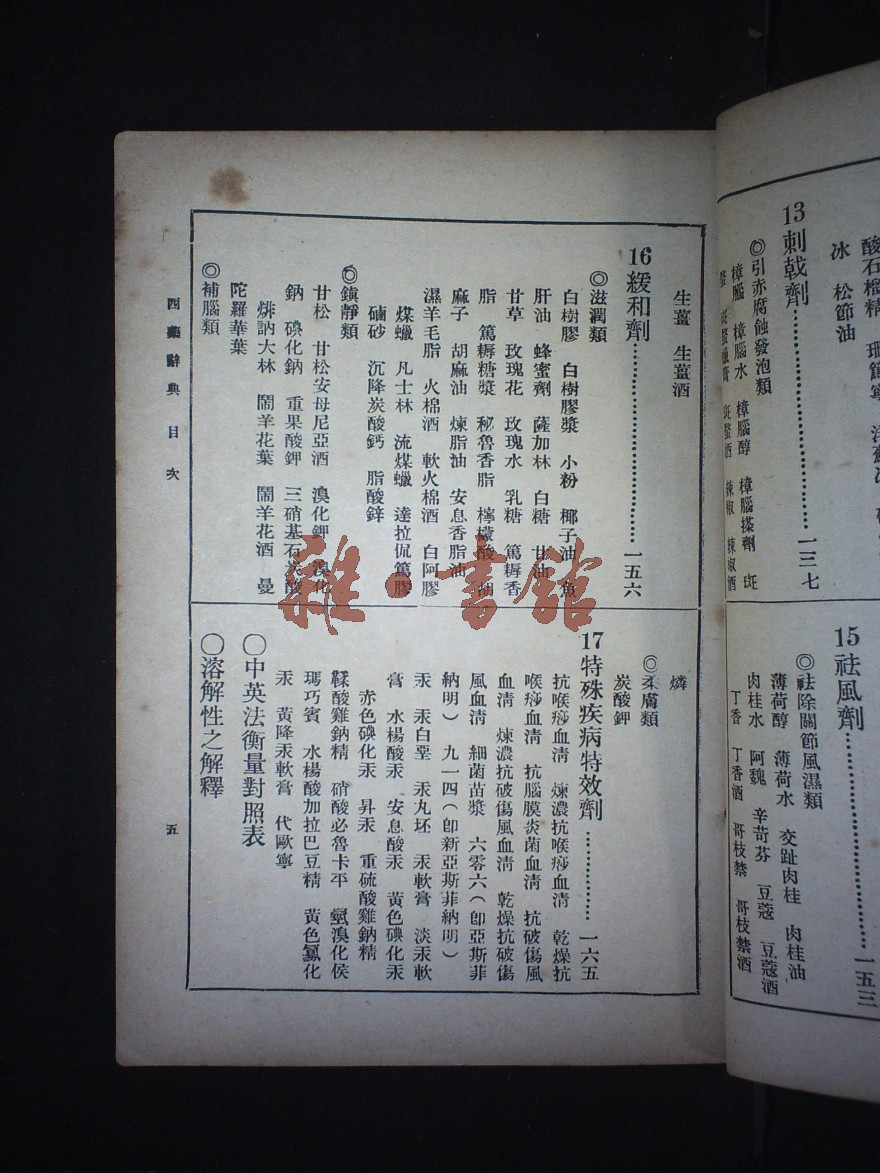 酸石榴精
冰 松節油
13 刺戟劑…一三七
◎引赤腐蝕發泡類
樟腦 樟腦水 樟腦醇 樟腦搽劑 斑
斑蝥酒 辣椒 辣椒酒
15 祛風劑…一五三
◎祛除關節風濕類
薄荷醇 薄荷水 交趾肉桂 肉桂油
肉桂水 阿魏 辛苛芬 豆蔻 豆蔻酒
丁香 丁香酒 哥枝禁 哥枝禁酒
生薑 生薑酒
16 緩和劑…一五六
◎滋潤類
白樹膠 白樹膠漿 小粉 椰子油 魚
肝油 蜂蜜劑 薩加林 白糖 甘油
甘草 玫瑰花 玫瑰水 乳糖 篤耨香
脂 篤耨糖漿 秘魯香脂 檸檬酸 胡
麻子 胡麻油 煉脂油 安息香脂油
濕羊毛脂 火棉酒 軟火棉酒 白阿膠
煤蠟 凡士林 流煤蠟 達拉侃篤膠
硇砂 沉降炭酸鈣 脂酸鋅
◎鎮靜類
甘松 甘松安母尼亞酒 溴化鉀 溴化
鈉 碘化鈉 重果酸鉀 三硝基石炭酸
焻訥大林 鬧羊花葉 鬧羊花酒 曼
陀羅華葉
◎補腦類
燐
◎柔膚類
炭酸鉀
17 特殊疾病特效劑…一六五
抗喉痧血清 煉濃抗喉痧血清 乾燥抗
喉痧血清 抗腦膜炎菌血清 抗破傷風
血清 煉濃抗破傷風血清 乾燥抗破傷
風血清 細菌苗漿 六零六(卽亞斯菲
納明) 九一四(卽新亞斯菲納明)
汞 汞白堊 汞丸坯 汞軟膏 淡汞軟
膏 水楊酸汞 安息酸汞 黃色碘化汞
赤色碘化汞 昇汞 重硫酸雞鈉精
鞣酸雞鈉精 硝酸必魯卡平 氫溴化侯
瑪巧賓 水楊酸加拉巴豆精 黃色氯化
汞 黃降汞軟膏 代歐寧
〇中英法衡量對照表
〇溶解性之解釋
西藥辭典目次
五
雜·書館